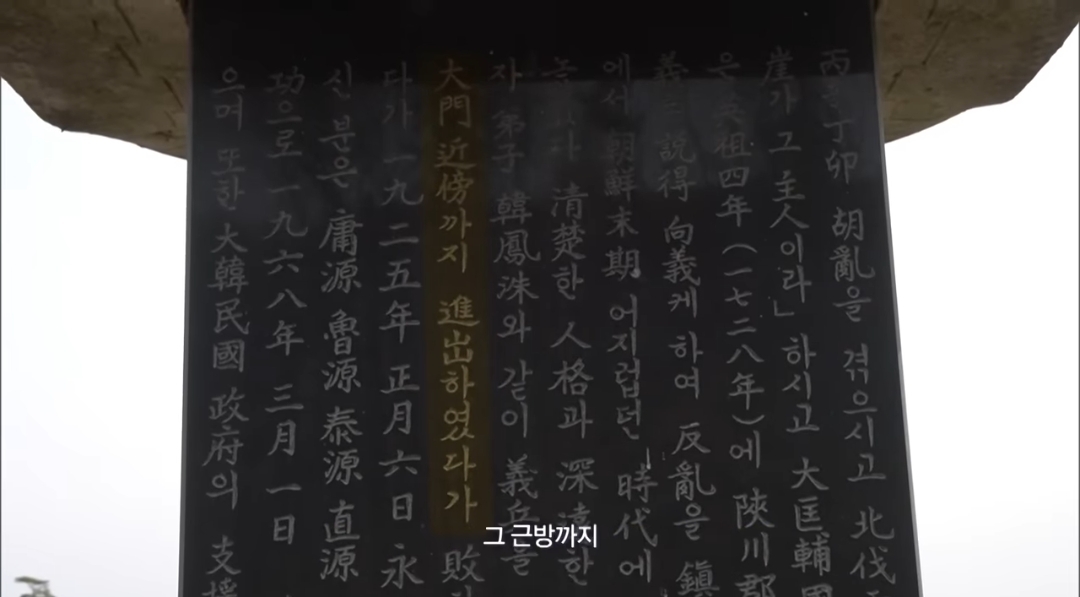 丙子丁卯 胡亂을 겪으시고 北伐
崖가 그 主人이라」하시고 大匡輔
은 英祖四年(一七二八年)에 陜川郡
義로 說得 向義케 하여 反亂을 鎭
에서 朝鮮末期 어지럽던 時代에
淸楚한 人格과 深遠한
자 弟子 韓鳳洙와 같이 義兵을
大門近榜까지 進出하였다가 敗
다가 一九二五年 正月 六日 永
신 분은 庸源 魯源 泰源 直源
功으로 一九六八年 三月 一日
으며 또한 大韓民國 政府의 支
그 근방까지